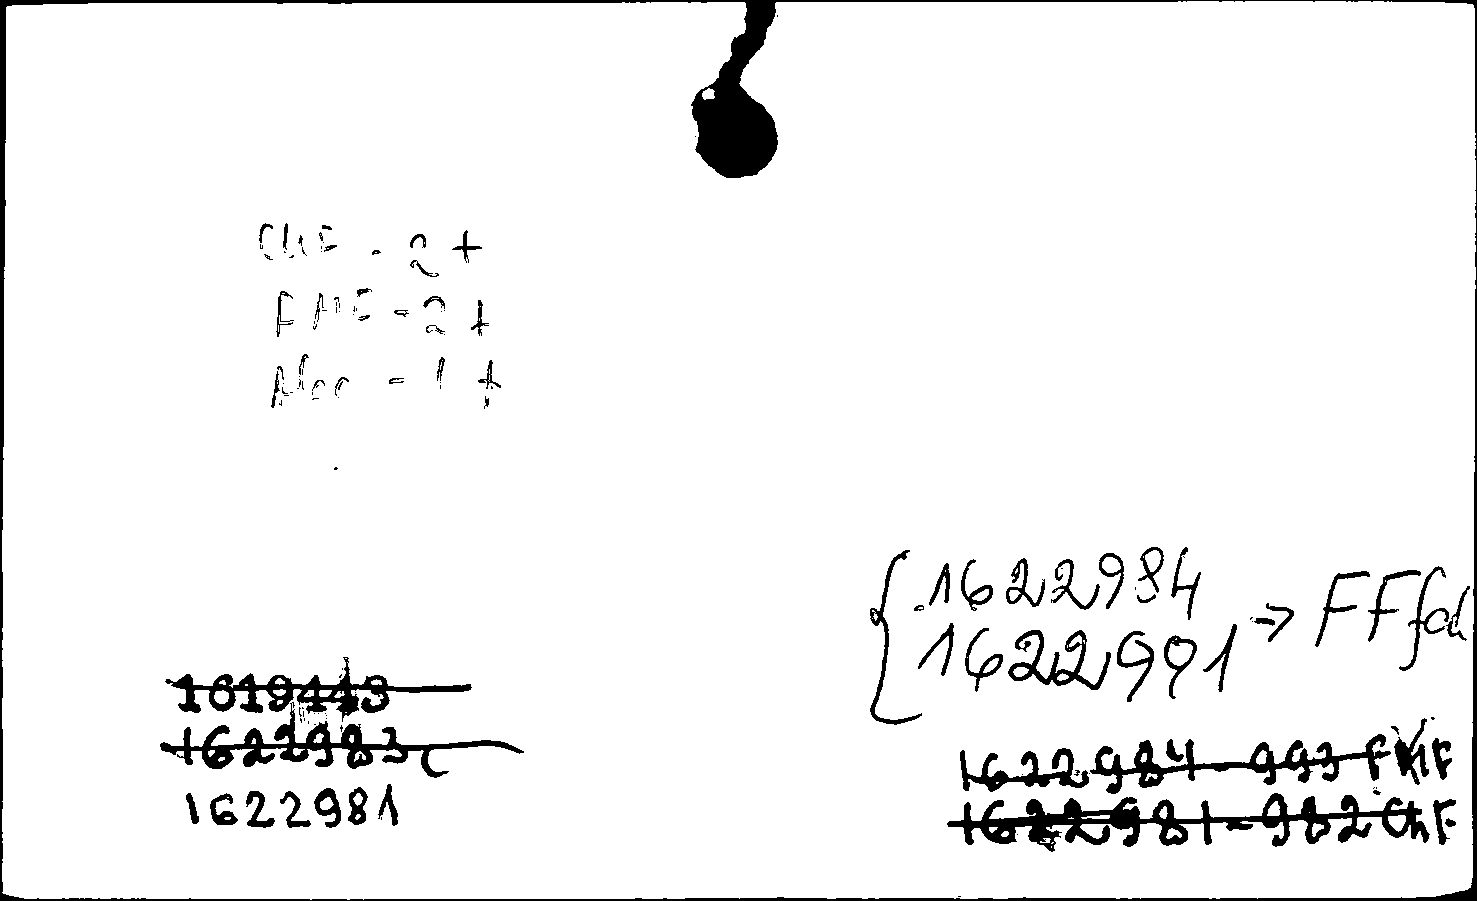 ChF - 2 +
FMF - 2 +
- 1 +
1622984
1622991 → FF
1619443
1622983
1622981
1622984 - 993 FMF
1622981 - 982 ChF